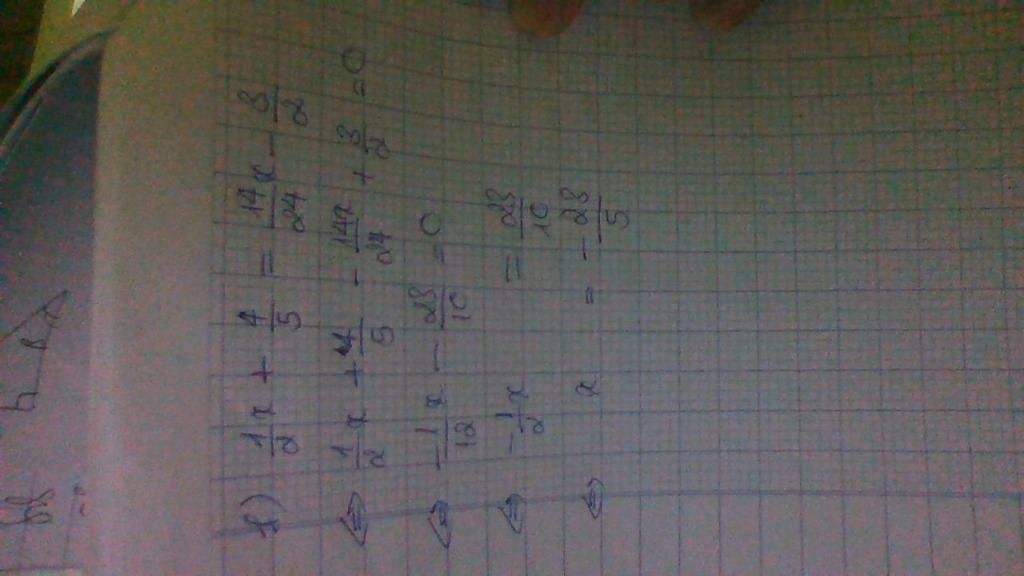 f) 1/2 x + 4/5 = 14/24 x - 3/2
⇔ 1/2 x + 4/5 - 14x/24 + 3/2 = 0
⇔ - 1/12 x - 23/10 = 0
⇔ - 1/2 x = 23/10
⇔ x = - 23/5